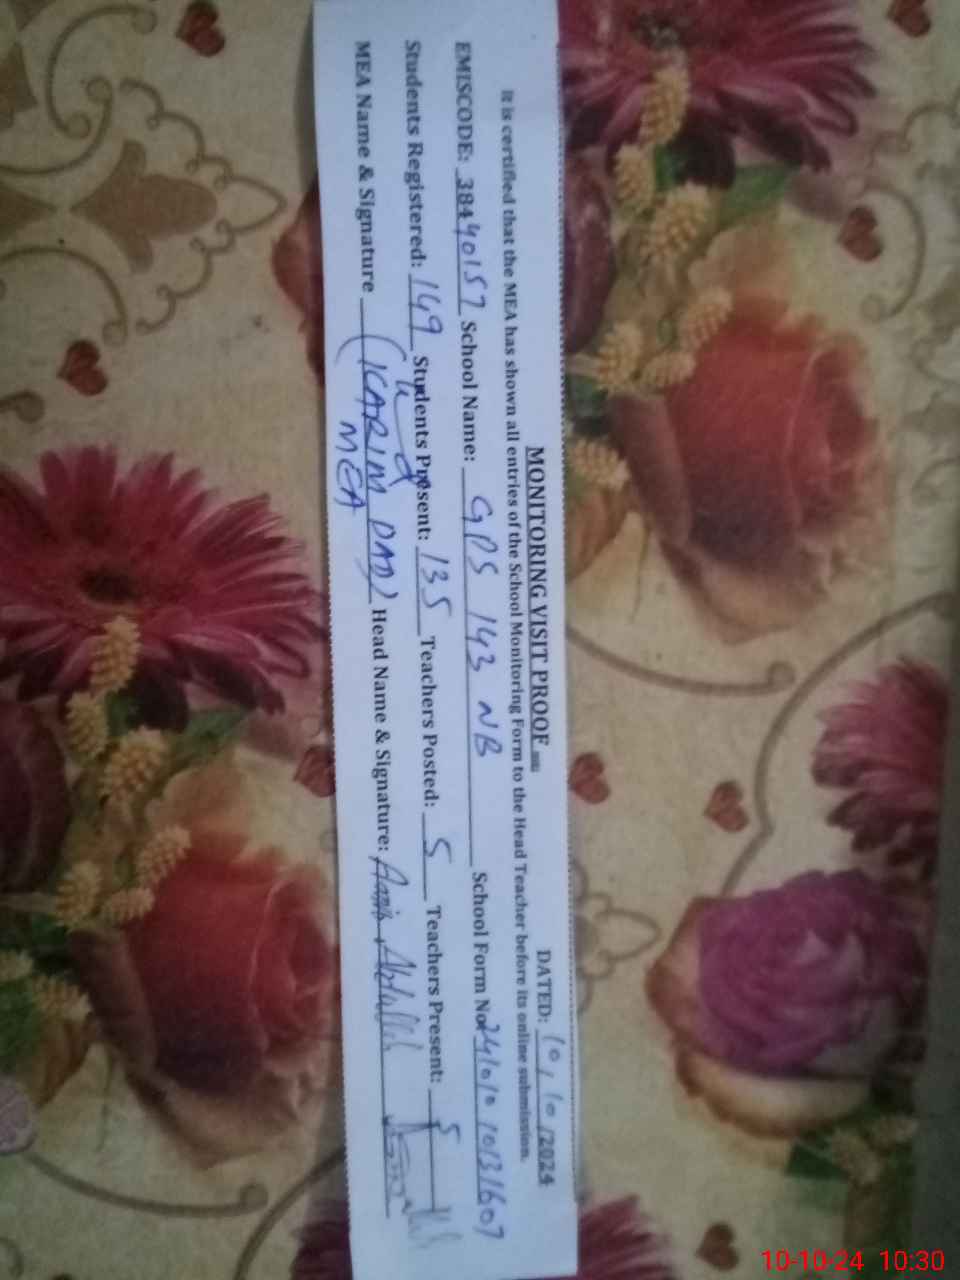 MONITORING VISIT PROOF
DATED: 10/10/2024
It is certified that the MEA has shown all entries of the School Monitoring Form to the Head Teacher before its online submission.
EMISCODE: 38440157 School Name: GPS 143 NB School Form No.
Students Registered: 149 Students Present: 135 Teachers Posted: 5 Teachers Present: 5
MEA Name & Signature (KARIM DAD) Head Name & Signature: Abdullah
MEA
10-10-24 10:30